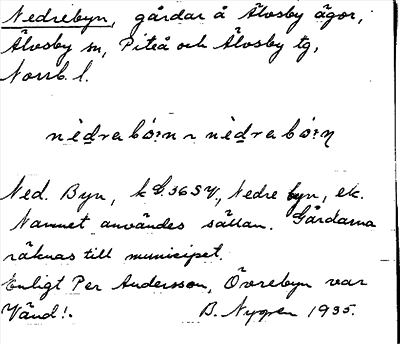 Nedrebyn, gårdar å Älvsby ägor,
Älvsby sn, Piteå och Älvsby tg,
Norrb. l.
nèdrabó:n ~ nèdrabó:n
Ned. Byn, k G. 36 S V., Nedre byn, ek.
Namnet användes sällan. Gårdarna
räknas till municipet.
Enligt Per Andersson, Övrebyn var
Vänd!. B. Nygren 1935.